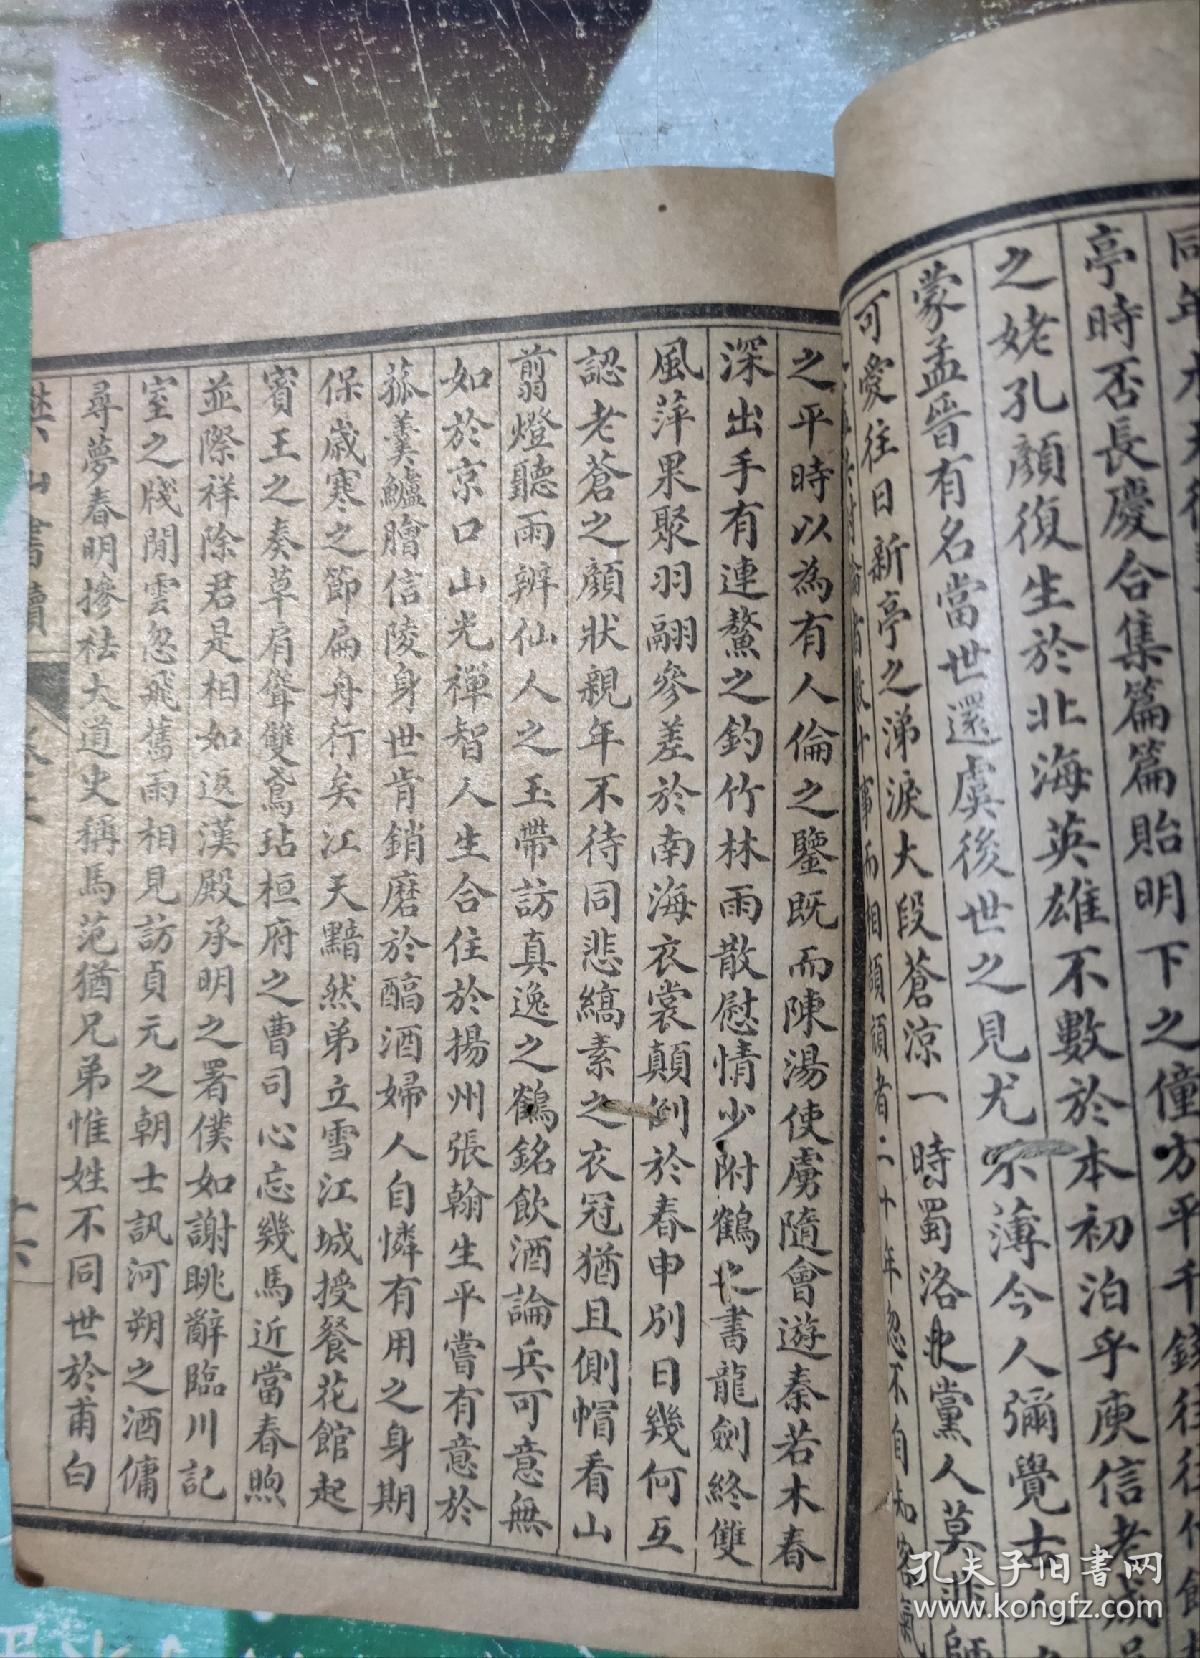 亭時否長慶合集篇篇貽明下之僮方平千錢往往付
之姥孔顏復生於北海英雄不數於本初洎乎庾信老成
蒙孟晉有名當世還虞後世之見尤不薄今人彌覺士
可愛往日新亭之涕淚大段蒼涼一時蜀洛之黨人莫非師
相顧頭者二十年忽不自知
之平時以為有人倫之鑒既而陳湯使虜隨會遊秦若木春
深出手有連鰲之釣竹林雨散慰情少附鶴之書龍劍終雙
風萍果聚羽翮參差於南海衣裳顛倒於春申別日幾何互
認老蒼之顏狀親年不待同悲縞素之衣冠猶且側帽看山
翦燈聽雨辨仙人之玉帶訪真逸之鶴銘飲酒論兵可意無
如於京口山光禪智人生合住於揚州張翰生平嘗有意於
菰羹鱸膾信陵身世肯銷磨於醕酒婦人自憐有用之身期
保歲寒之節扁舟行矣江天黯然弟立雪江城授餐花館起
賓王之奏草肩聳雙鳶玷桓府之曹司心忘幾馬近當春煦
並際祥除君是相如返漢殿承明之署僕如謝眺辭臨川記
室之牋閒雲忽飛舊雨相見訪貞元之朝士訊河朔之酒傭
尋夢春明摻袪大道史稱馬范猶兄弟惟姓不同世於甫白
樊山書牘
十六
孔夫子旧书网
www.kongfz.com